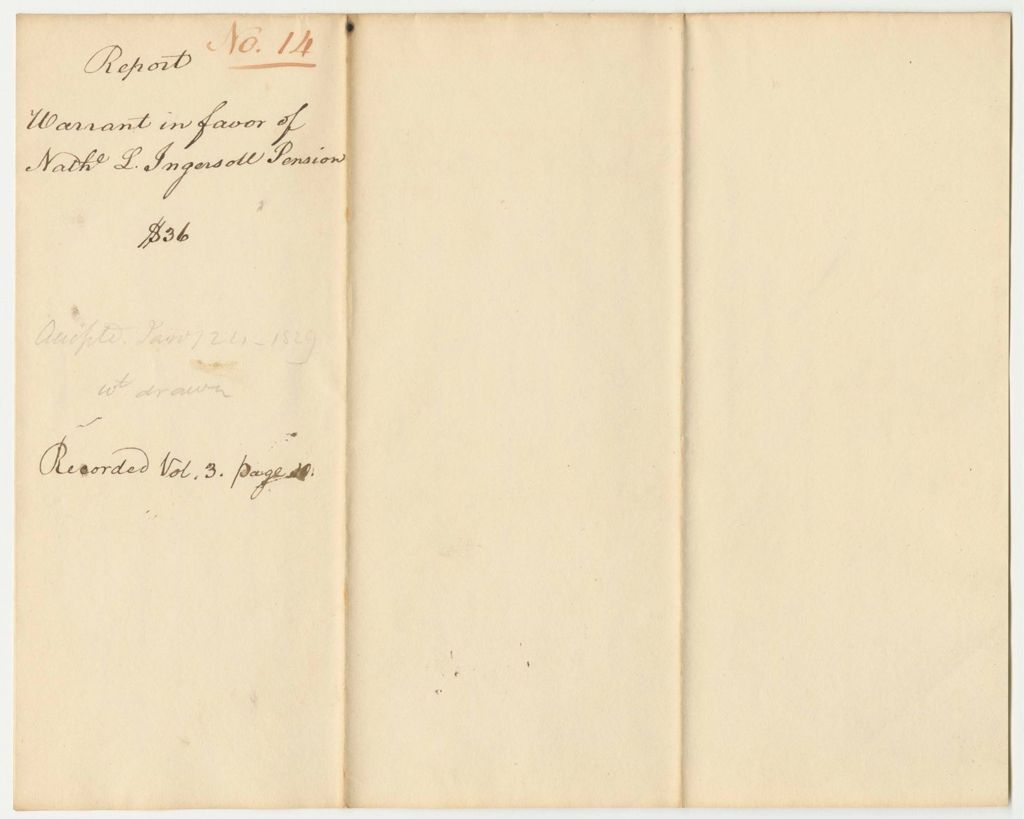 No. 14
Report
Warrant in favor of
Nathl L. Ingersoll Pension
$36
Accepted. Jany 24 - 1829
wt drawn
Recorded Vol. 3. page